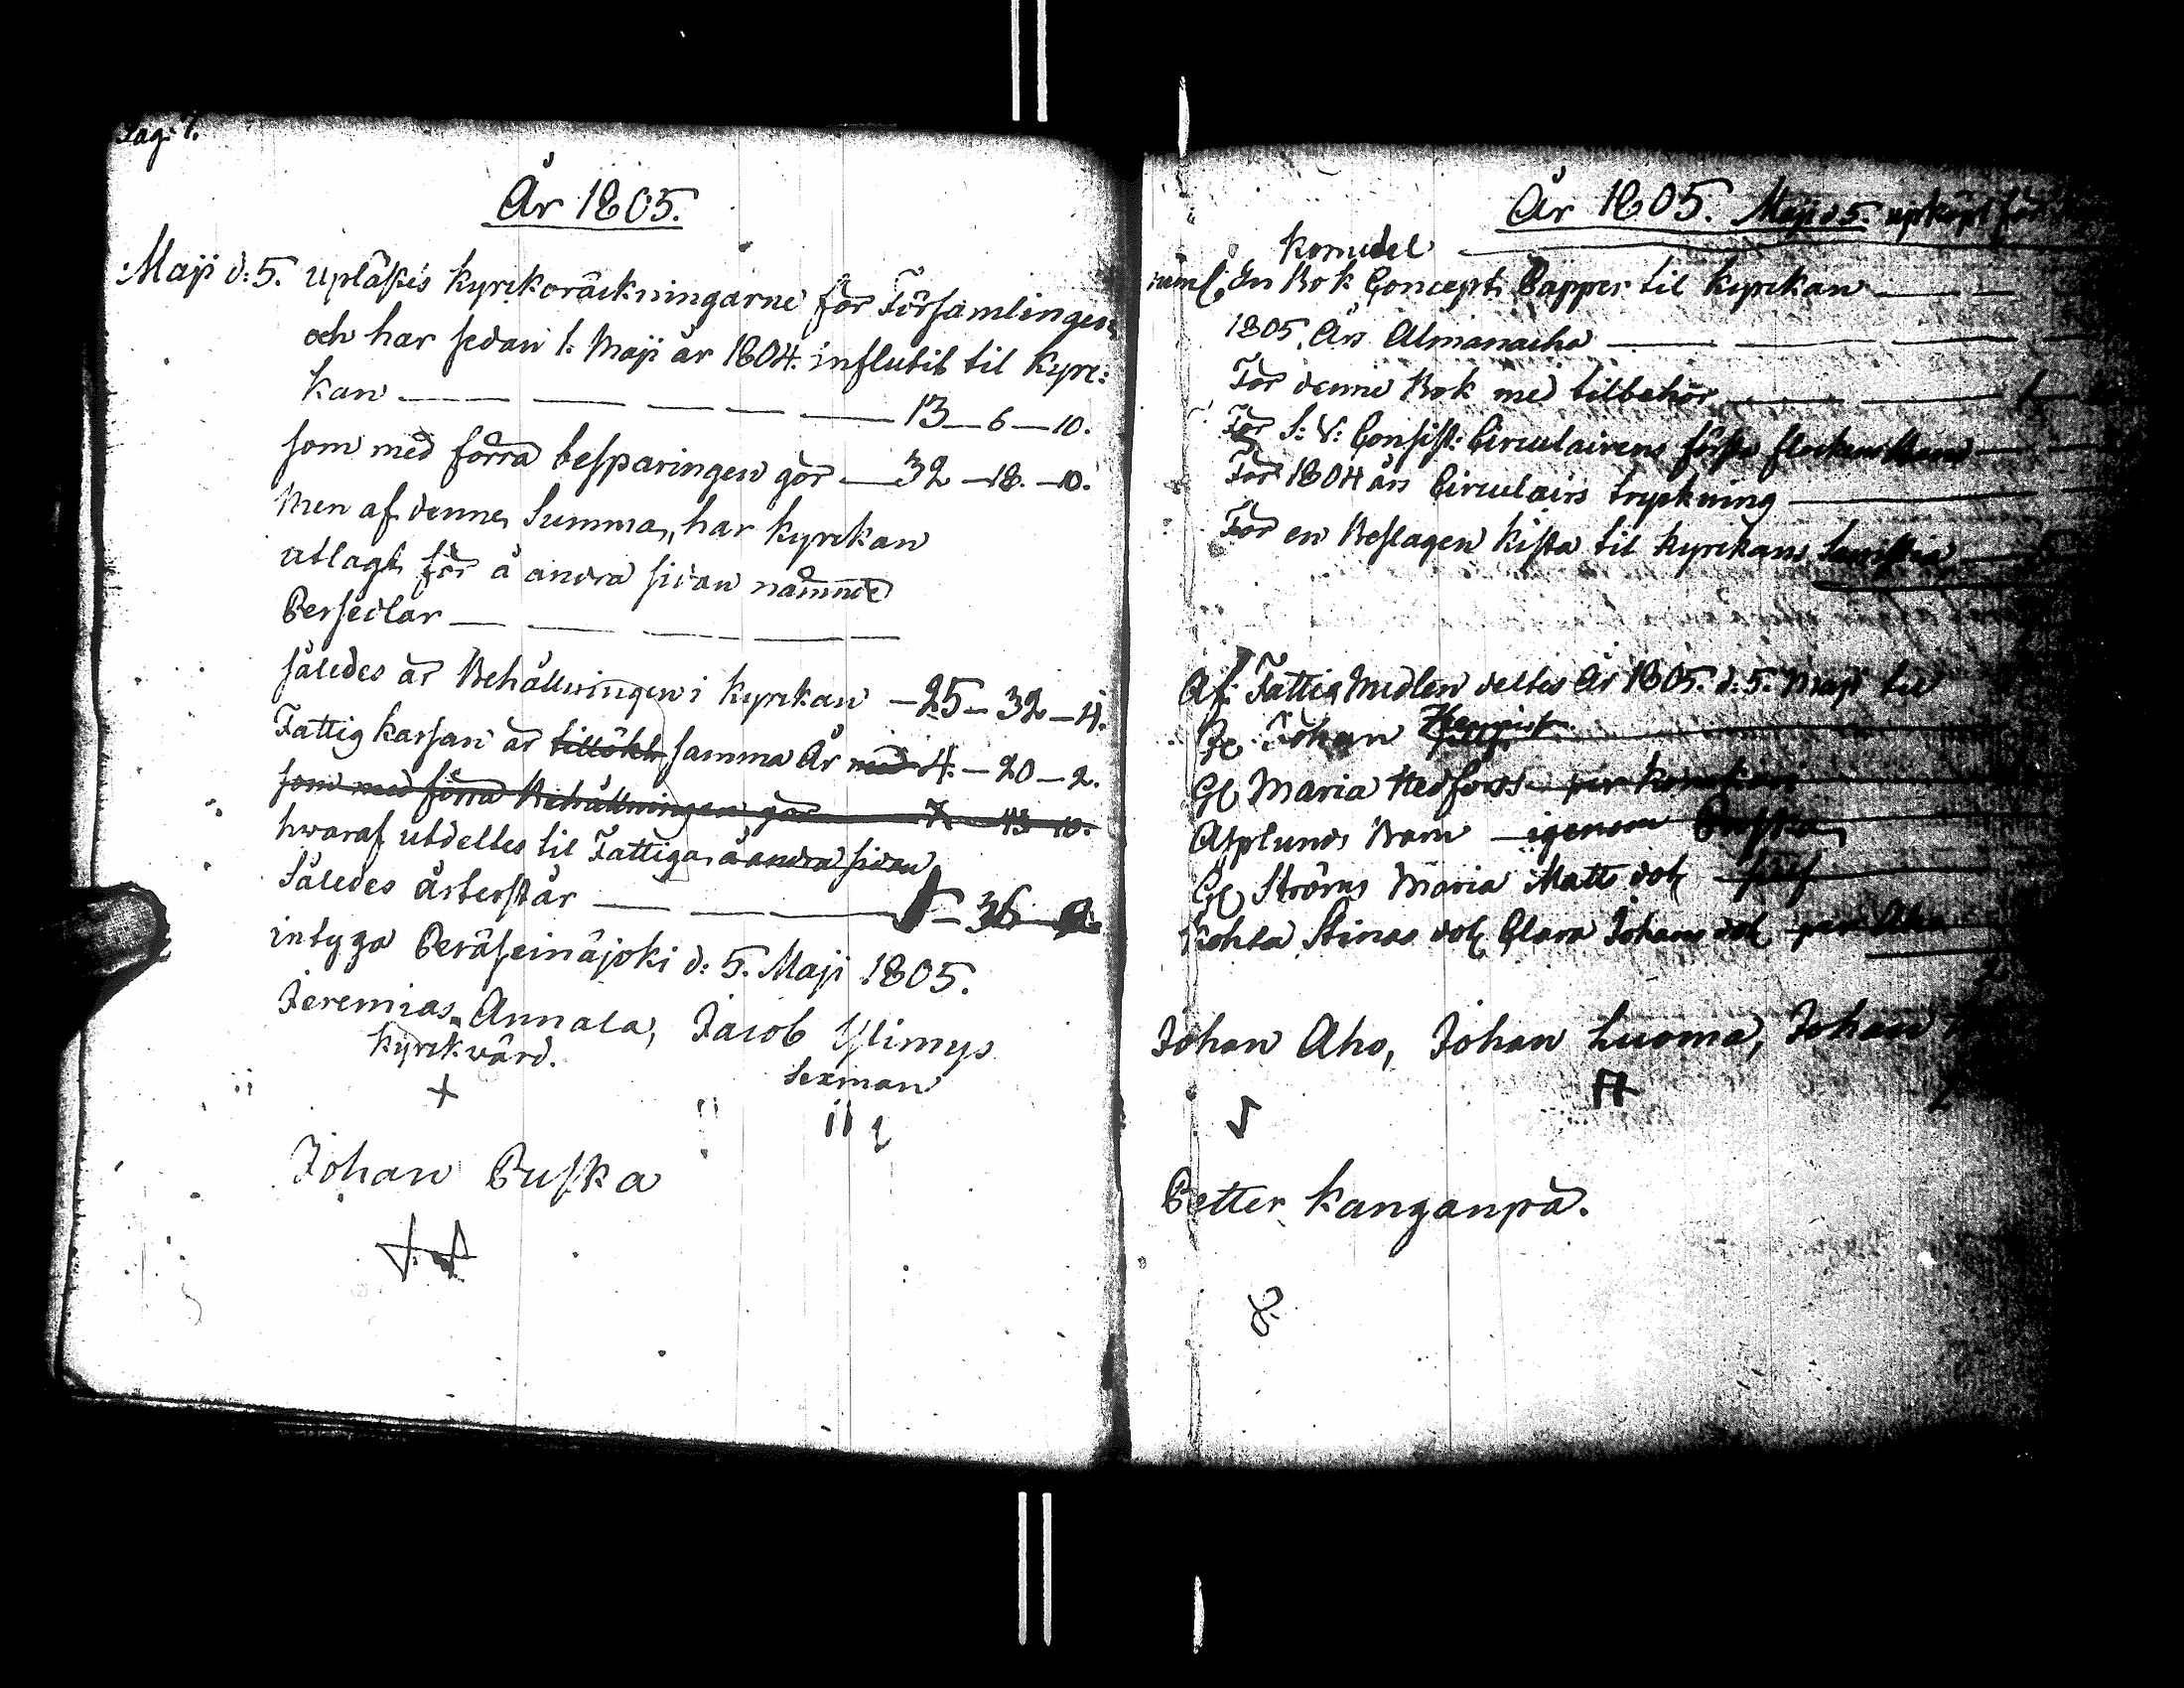 Pag. 7.
År 1805.
Maji d: 5. uplästes kyrckoräckningarne för Församlingen,
och har sedan 1. Maji år 1804. influtit til kyrc:
kan — 13 — 6 — 10.
som med förra besparingen gör — 32 — 18. — 10.
Men af denne Summa, har kyrckan
utlagt för å andra sidan nämnde
Persedlar
således är Behållningen i kyrckan — 25 — 32 — 4.
Fattig kassan är tillökt samma År med 4. — 20 — 2.
som med förra Behållningen gör 7. — 43 — 10.
hwaraf utdeltes til Fattiga å andra sidan
Således återstår — 36
intyga Peräseinäjoki d: 5. Maji 1805.
Jeremias Annala, Jacob Ylimys
kyrckwärd. Sexman
Johan Puska
År 1805. Maji d 5. upköpt för
näml: En Bok Concept Papper til kyrckan
1805 Års Almanacha
För denne Bok med tilbehör — 1
För S: V: Consist: Circulairens första
För 1804 års Circulairs tryckning
För en Beslagen kista til kyrckans Sacristia
Af Fattig Medlen deltes År 1805. d: 5. Maji til
Johan
Maria Hedforss
Asplunds Barn igenom Puska
Ströms Maria Matts dotr sjelf
Stinas dotr Clara Johans dotr per Aho
Johan Aho, Johan Luoma, Johan
Petter kanganpä.